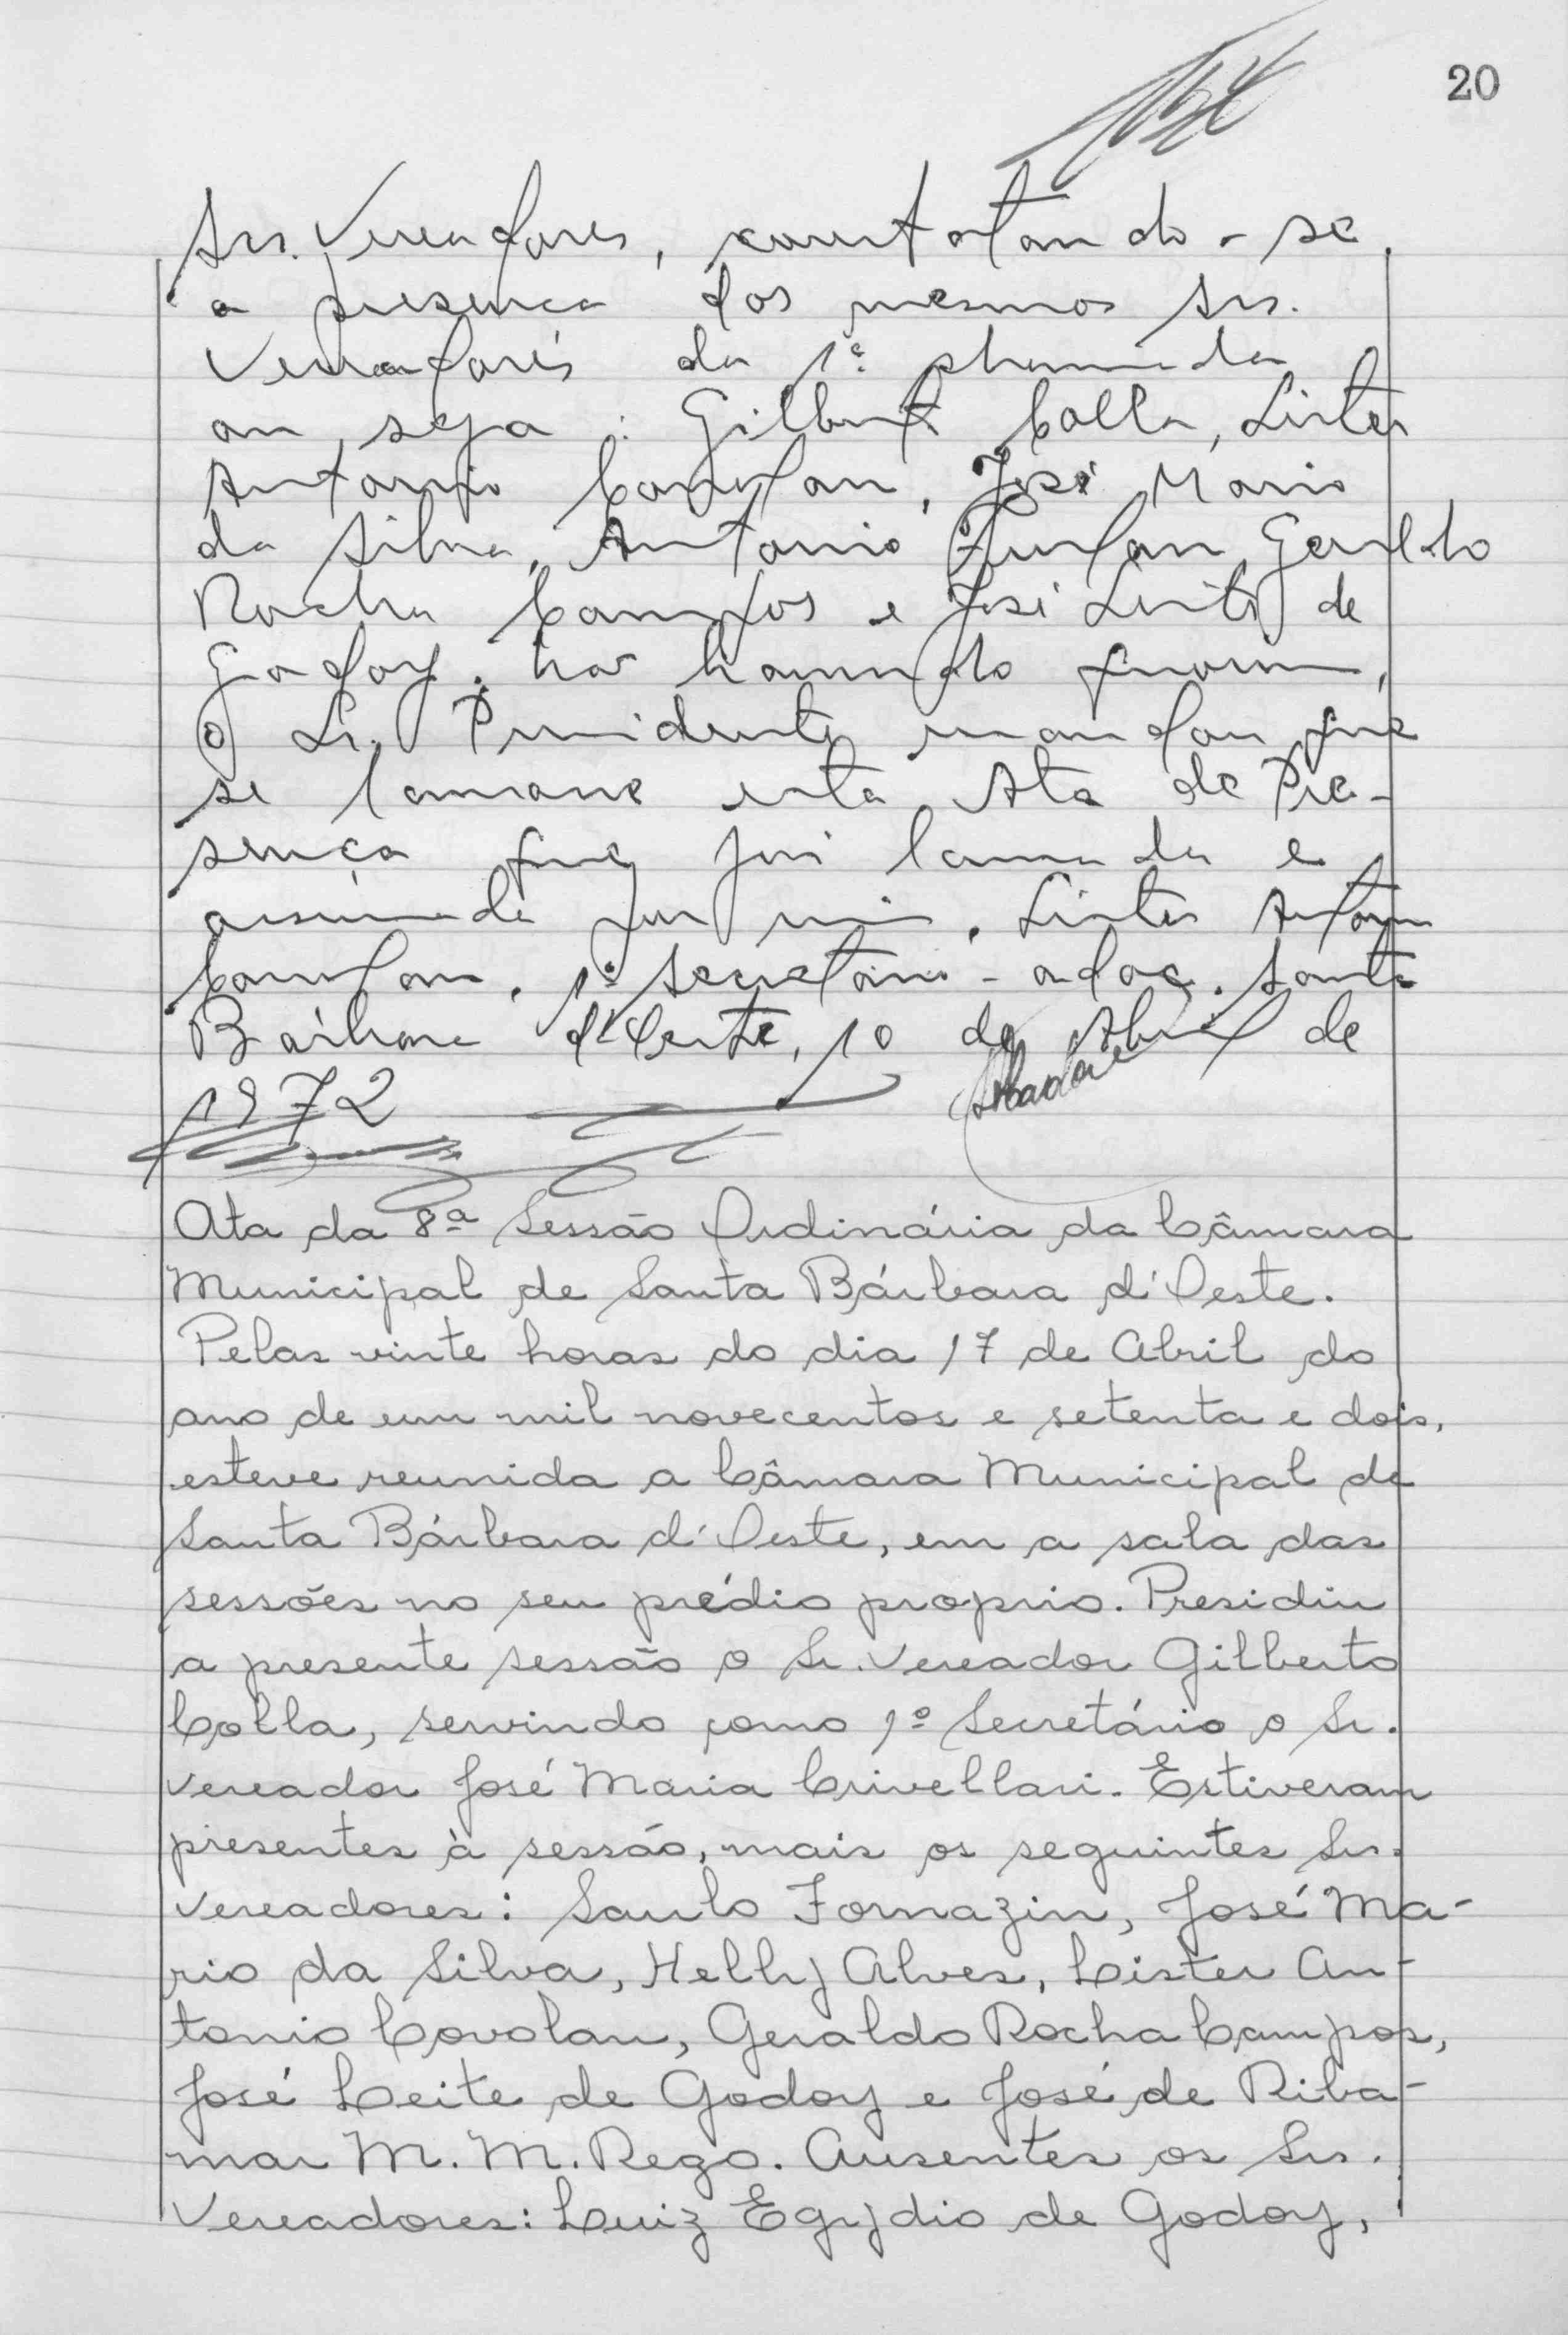 20
Srs. Vereadores, constatando-se
a presença dos mesmos Srs.
Vereadores da 1ª chamada
ou seja: Gilberto Colla, Lister
Antonio Covolan, José Mario
da Silva, Antonio Furlan, Geraldo
Rocha Campos e José Leite de
Godoy. Não havendo quorum,
o Sr. Presidente mandou que
se lavrasse esta Ata de Pre-
sença que foi lavrada e
assinada por mim, Lister Antonio
Covolan, 1º Secretário-adoc. Santa
Bárbara d'Oeste, 10 de Abril de
1972
Ata da 8ª Sessão Ordinária da Câmara
Municipal de Santa Bárbara d'Oeste.
Pelas vinte horas do dia 17 de Abril do
ano de um mil novecentos e setenta e dois,
esteve reunida a Câmara Municipal de
Santa Bárbara d'Oeste, em a sala das
sessões no seu prédio proprio. Presidiu
a presente sessão o Sr. Vereador Gilberto
Colla, servindo como 1º Secretário o Sr.
Vereador José Maria Crivellari. Estiveram
presentes à sessão, mais os seguintes Srs.
Vereadores: Saulo Fornazin, José Ma-
rio da Silva, Helly Alves, Lister An-
tonio Covolan, Geraldo Rocha Campos,
José Leite de Godoy e José de Riba-
mar M. M. Rego. Ausentes os Srs.
Vereadores: Luiz Egydio de Godoy,